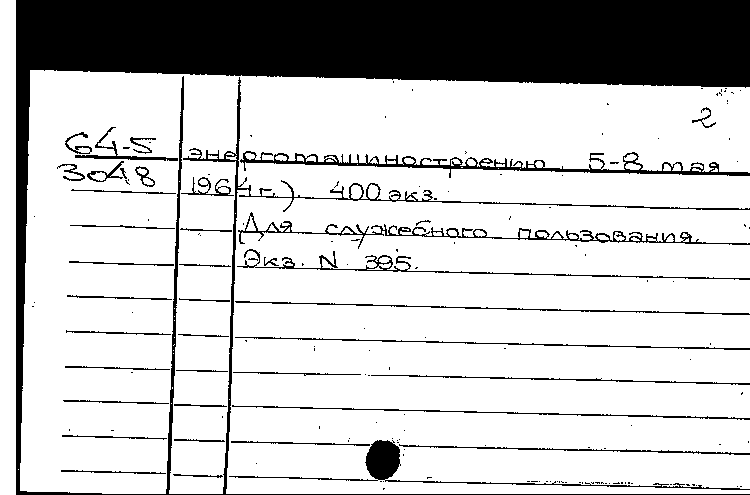 2
64-5 энергомашиностроению 5-8 мая
3048 1964 г.). 400 экз.
Для служебного пользования.
Экз. N 395.